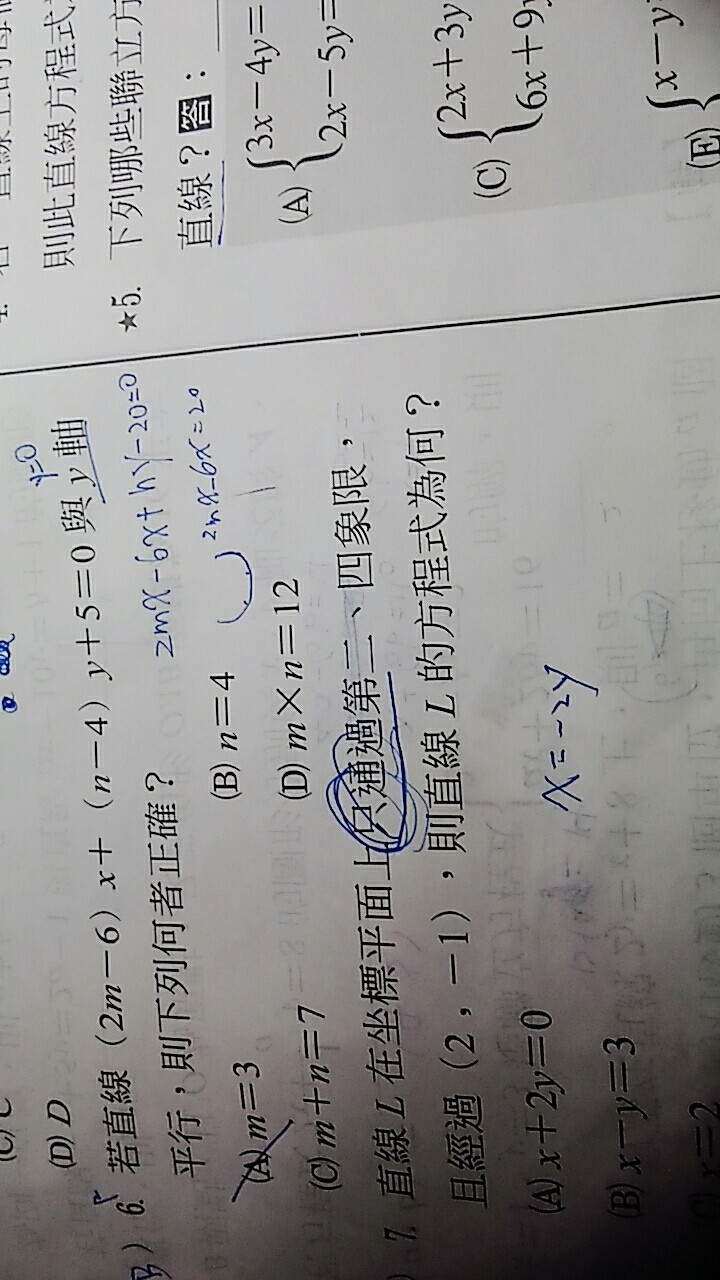 則此直線方程式
★5. 下列哪些聯立方
直線？答：
(A) {3x－4y=
2x－5y=
(C) {2x＋3y
6x＋9y
(E) {x－y
(D) D
y=0
6. 若直線（2m－6）x＋（n－4）y＋5＝0 與 y 軸
2mx-6x+ny-20=0
平行，則下列何者正確？
2mx-6x=20
(A) m＝3 (B) n＝4
(C) m＋n＝7 (D) m×n＝12
7. 直線 L 在坐標平面上只通過第二、四象限，
且經過（2，－1），則直線 L 的方程式為何？
(A) x＋2y＝0
x=-2y
(B) x－y＝3